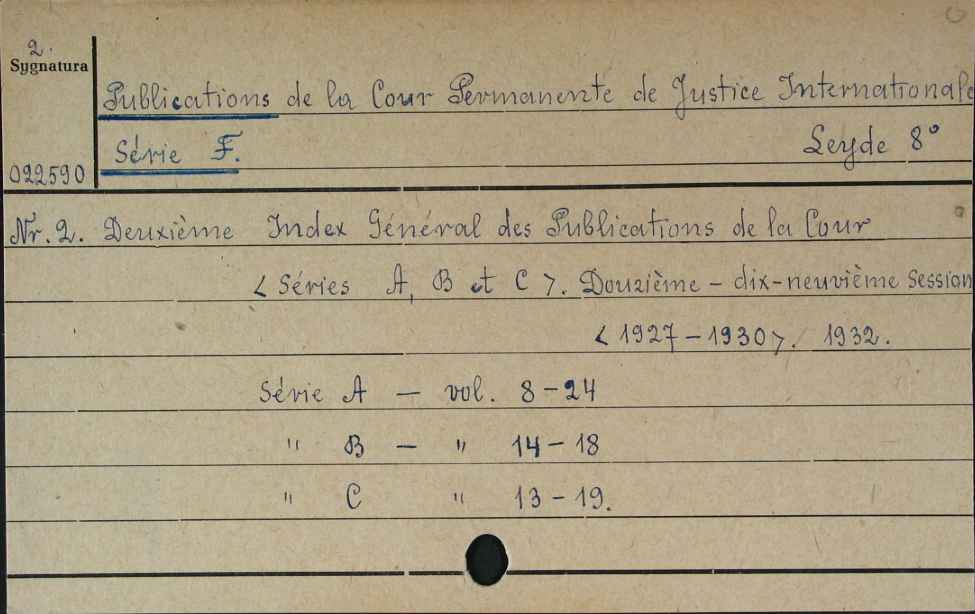 2.
Sygnatura
Publications de la Cour Permanente de Justice Internationale
Série F. Leyde 8°
022590
Nr. 2. Deuxième Index Général des Publications de la Cour
< Séries A, B et C >. Douzième - dix-neuvième Session
< 1927 - 1930 >. 1932.
Série A — vol. 8 - 24
" B — " 14 - 18
" C " 13 - 19.